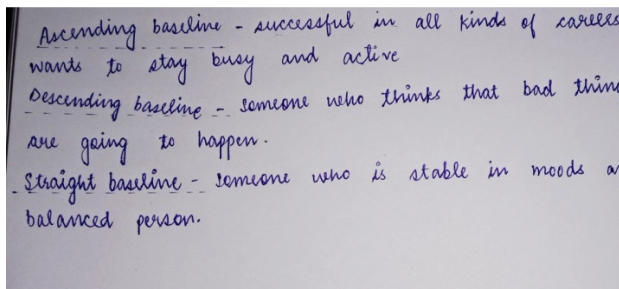 Ascending baseline - successful in all kinds of
wants to stay busy and active
Descending baseline - someone who thinks that bad
are going to happen.
Straight baseline - someone who is stable in moods
balanced person.